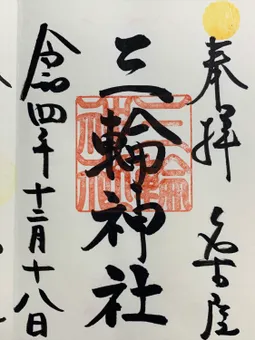 奉拝 名古屋
三輪神社
令和四年十二月十八日
三輪神社